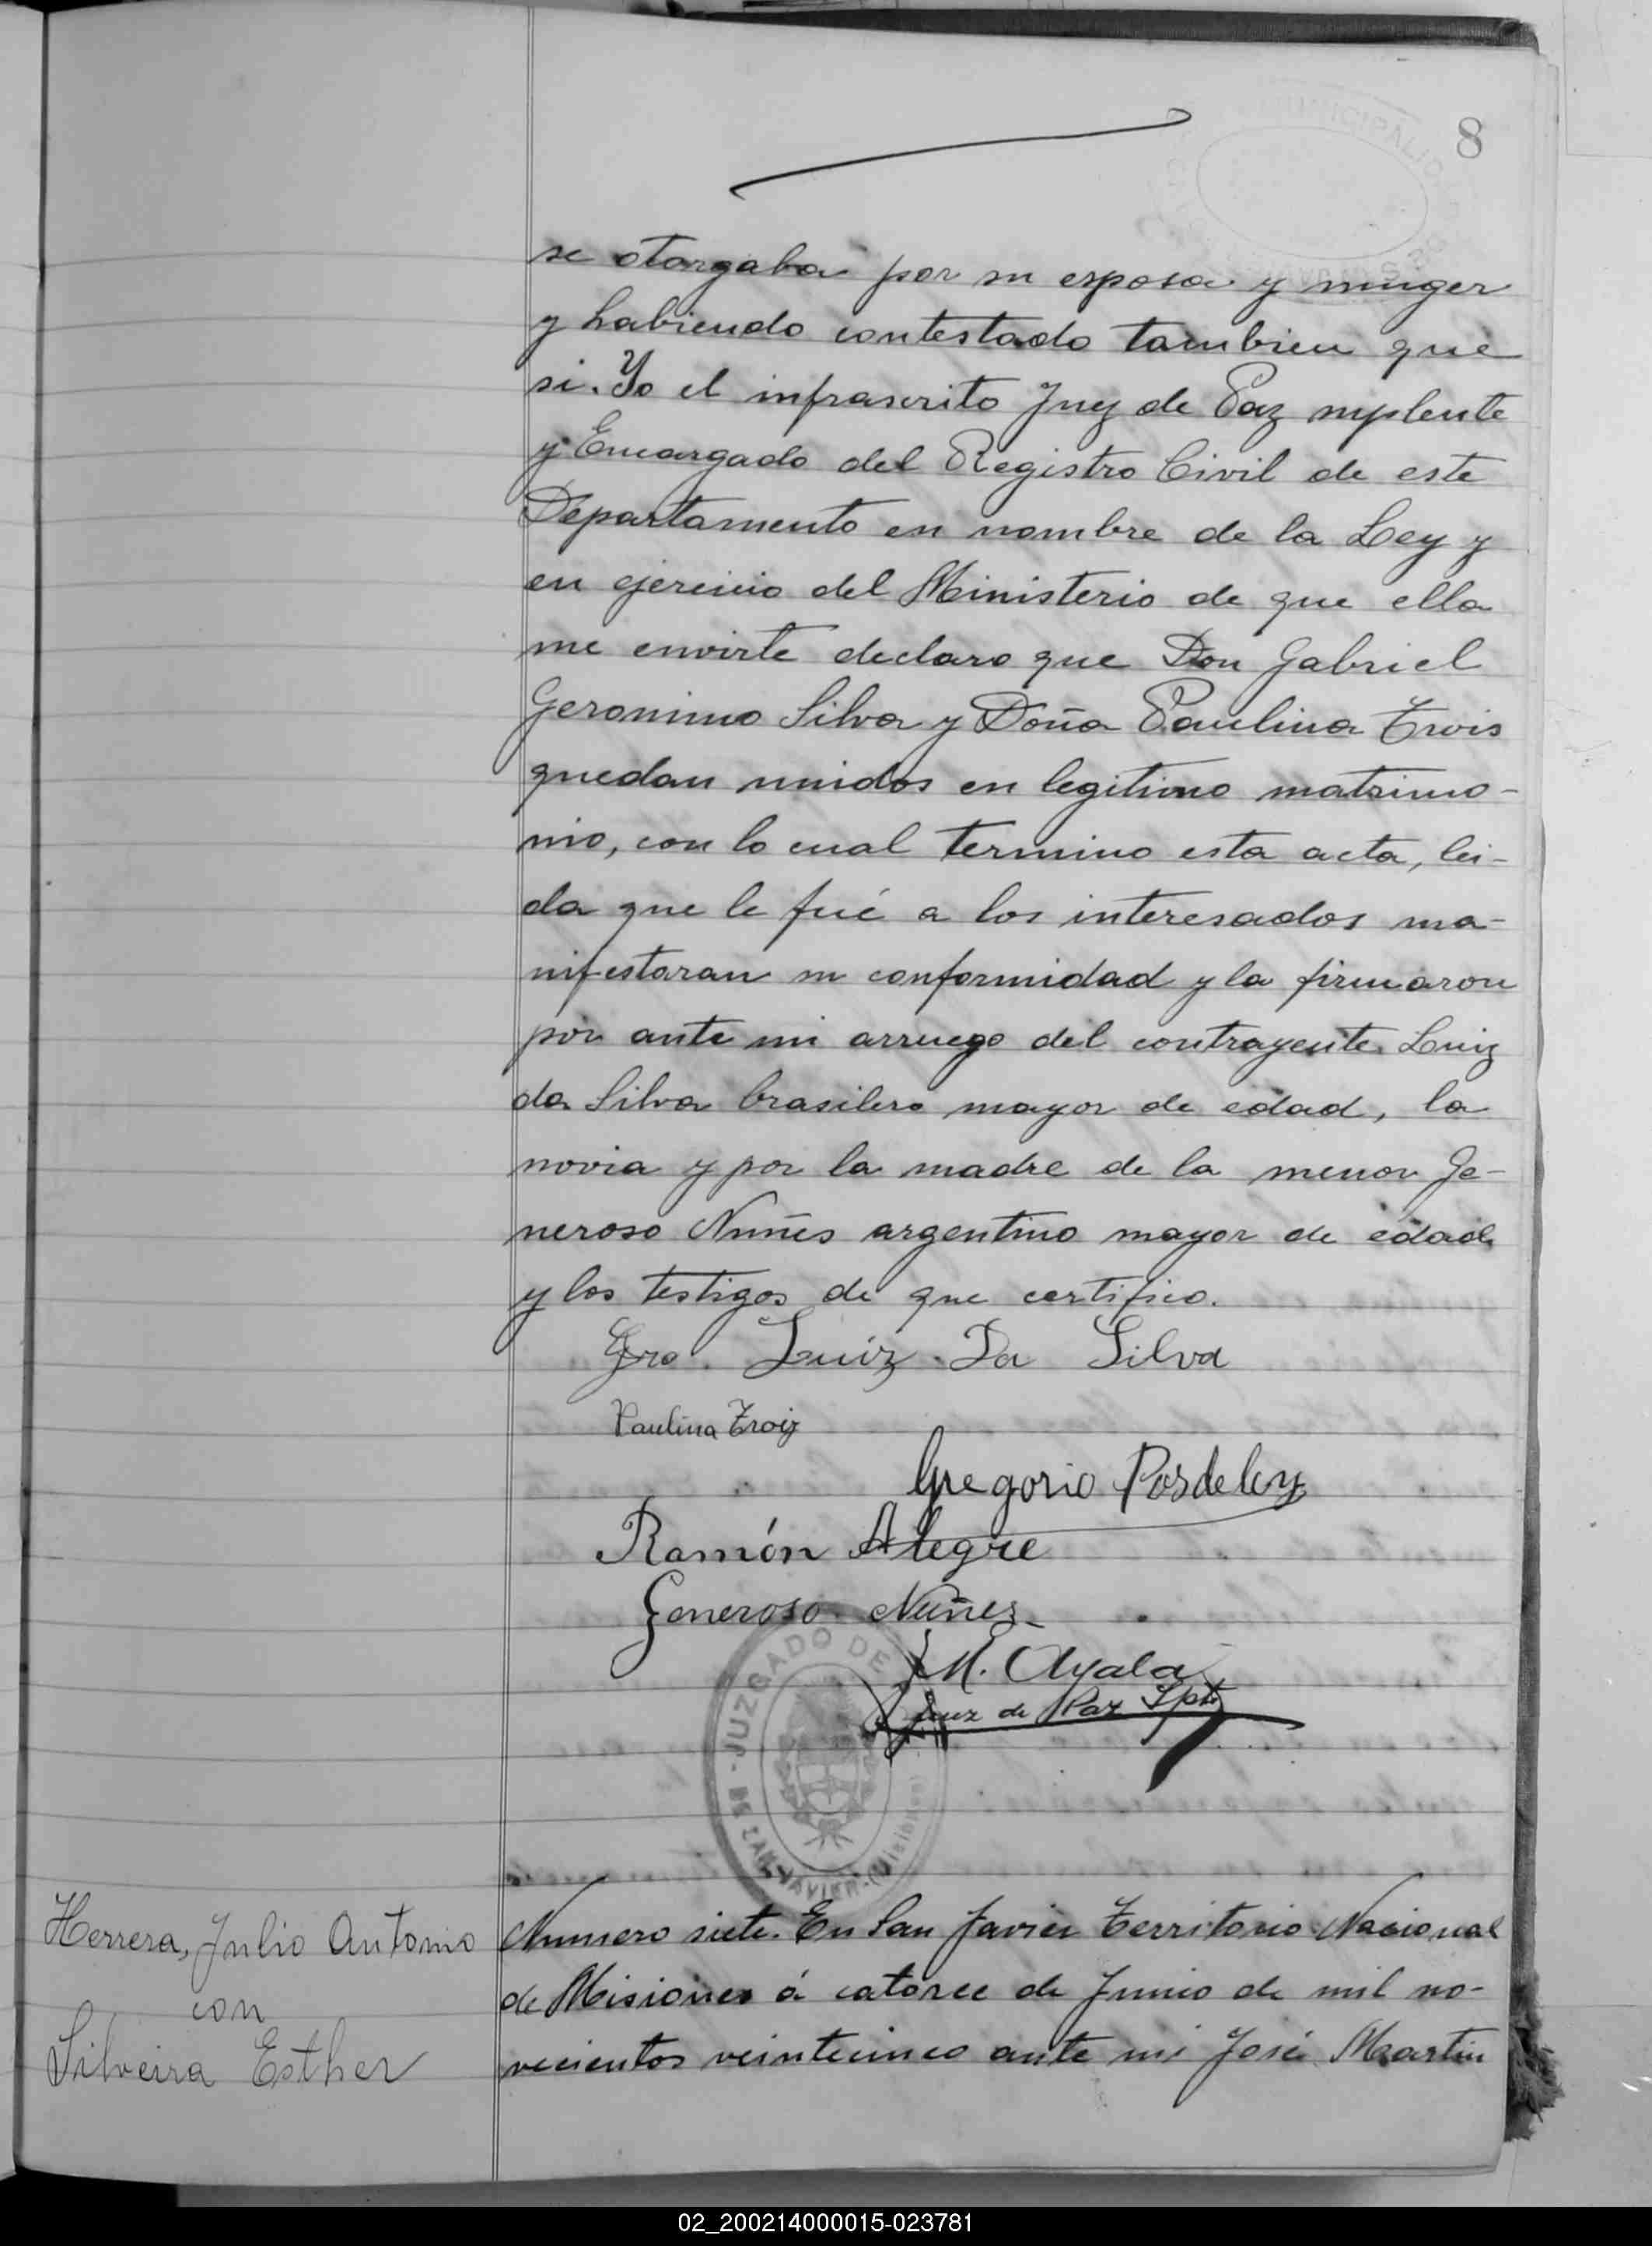 8
se otorgaba por su esposa y muger
y habiendo contestado tambien que
si. Yo el infrascrito Juez de Paz suplente
y Encargado del Registro Civil de este
Departamento en nombre de la Ley y
en ejercicio del Ministerio de que ella
me envirte declaro que Don Gabriel
Geronimo Silva y Doña Paulina Trois
quedan unidos en legitimo matrimo-
nio, con lo cual termino esta acta, lei-
da que le fué a los interesados ma-
nifestaran su conformidad y la firmaron
por ante mi arruego del contrayente Luiz
da Silva brasilero mayor de edad, la
novia y por la madre de la menor Je-
neroso Nuñes argentino mayor de edad
y los testigos de que certifico.
Luiz Da Silva
Paulina Troiz
Gregorio Posdeley
Ramón Alegre
Generoso Nuñez
M. Ayala
Juez de Paz Spte
JUZGADO DE
SAN JAVIER (Misiones)
Herrera, Julio Antonio
con
Silveira Esther
Numero siete. En San Javier Territorio Nacional
de Misiones á catorce de Junio de mil no-
vecientos veinticinco ante mi José Martin
02_200214000015-023781